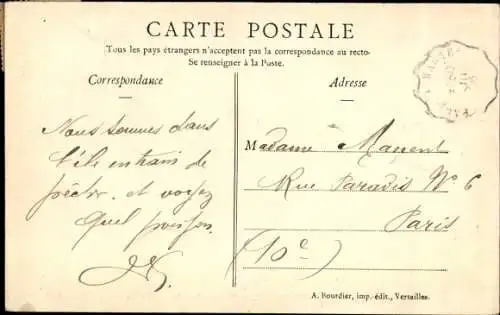 CARTE POSTALE
Tous les pays étrangers n'acceptent pas la correspondance au recto-
Se renseigner à la Poste.
Correspondance
Adresse
Nous sommes dans
l'île en train de
pêcher. et voyez
quel poisson.
Madame Manent
Rue Paradis No 6
Paris
(10e)
A. Bourdier, imp.-édit., Versailles.